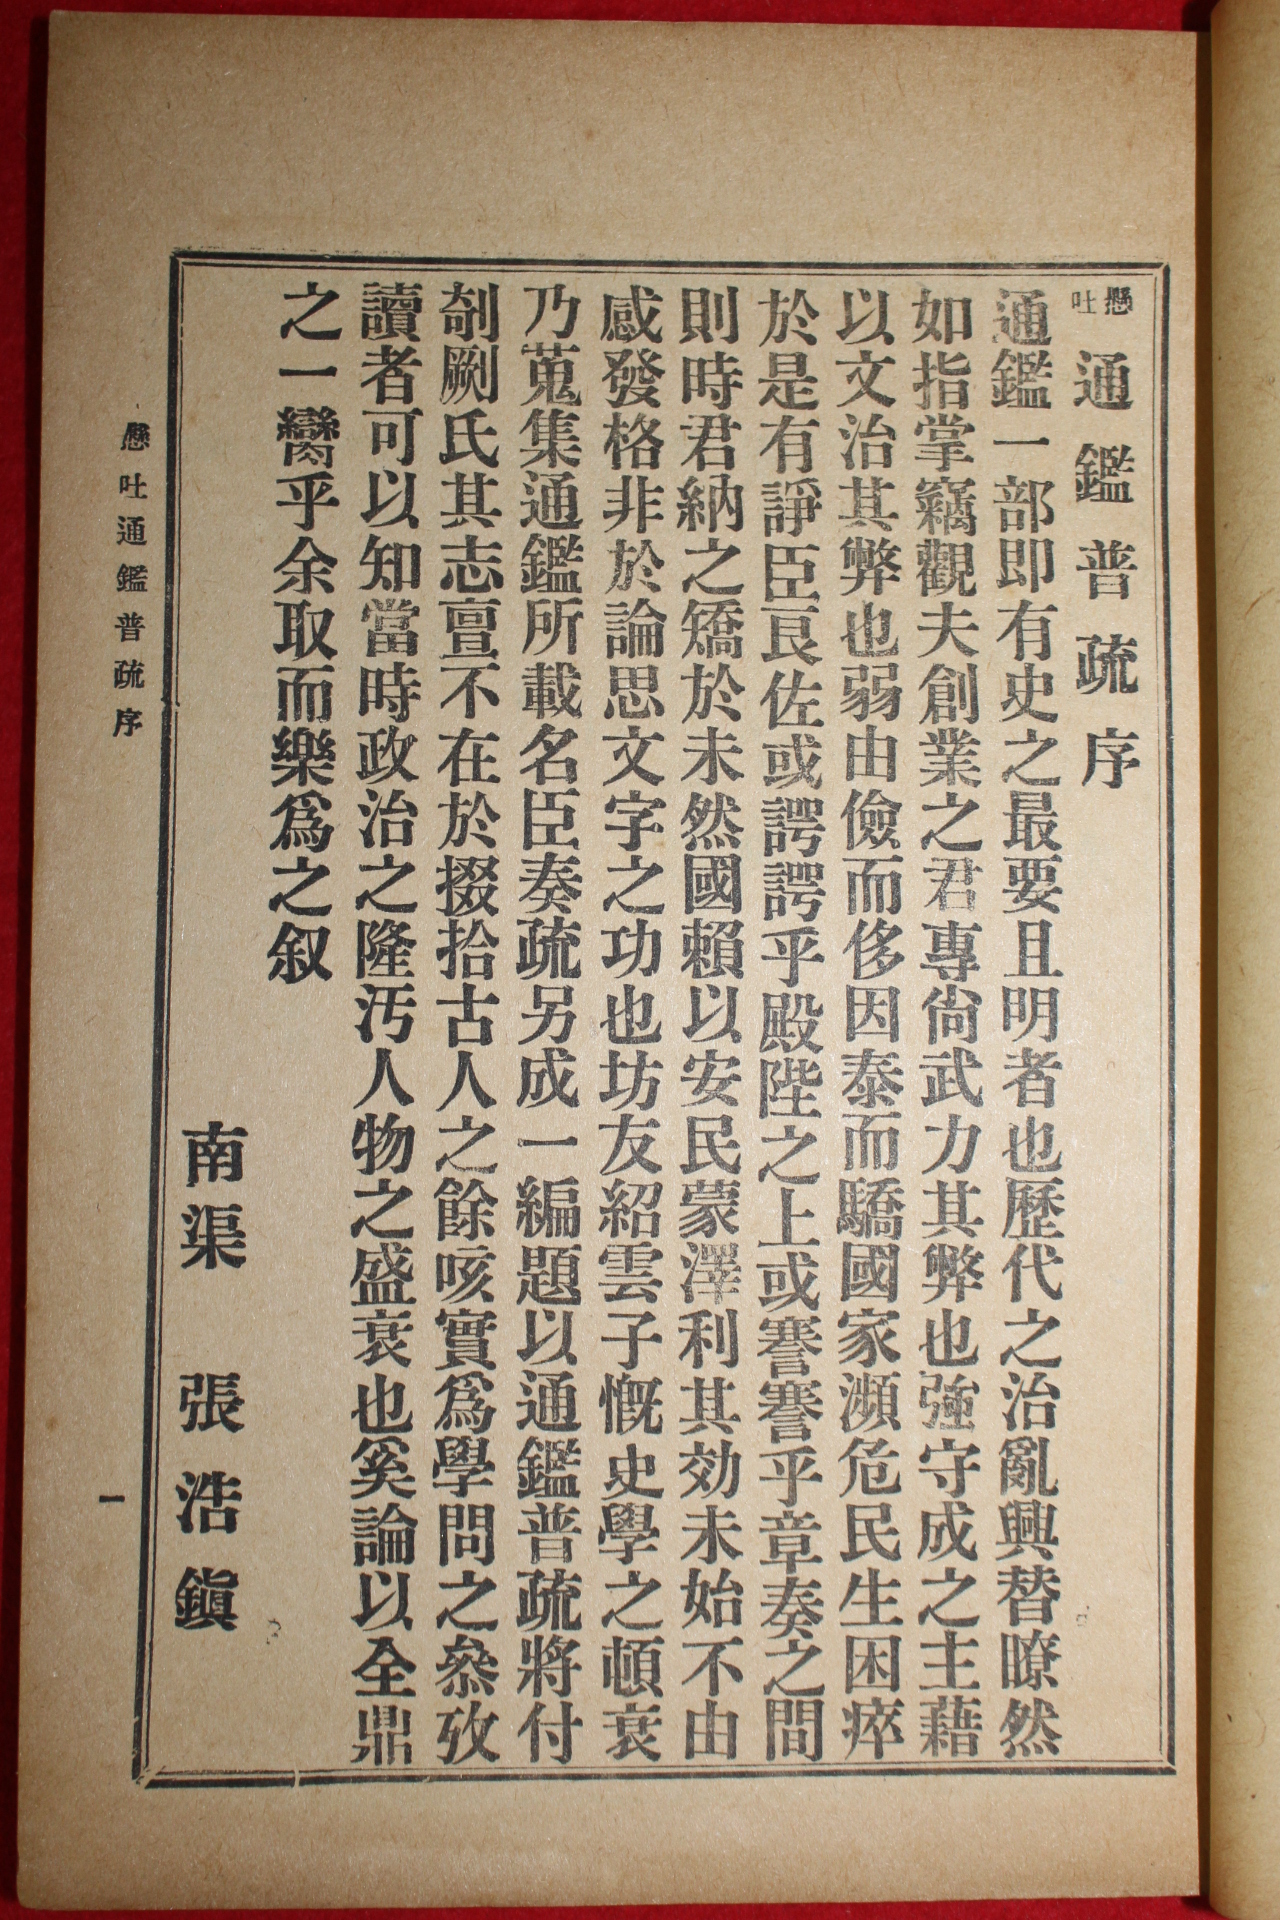 懸吐通鑑普疏序
通鑑一部即有史之最要且明者也歷代之治亂興替瞭然
如指掌竊觀夫創業之君專尙武力其弊也強守成之主藉
以文治其弊也弱由儉而侈因泰而驕國家瀕危民生困瘁
於是有諍臣良佐或諤諤乎殿陛之上或謇謇乎章奏之間
則時君納之矯於未然國賴以安民蒙澤利其効未始不由
感發格非於論思文字之功也坊友紹雲子慨史學之頓衰
乃蒐集通鑑所載名臣奏疏另成一編題以通鑑普疏將付
剞劂氏其志亶不在於掇拾古人之餘咳實爲學問之叅攷
讀者可以知當時政治之隆汚人物之盛衰也奚論以全鼎
之一臠乎余取而樂爲之叙
南渠 張浩鎭
懸吐通鑑普疏序
一